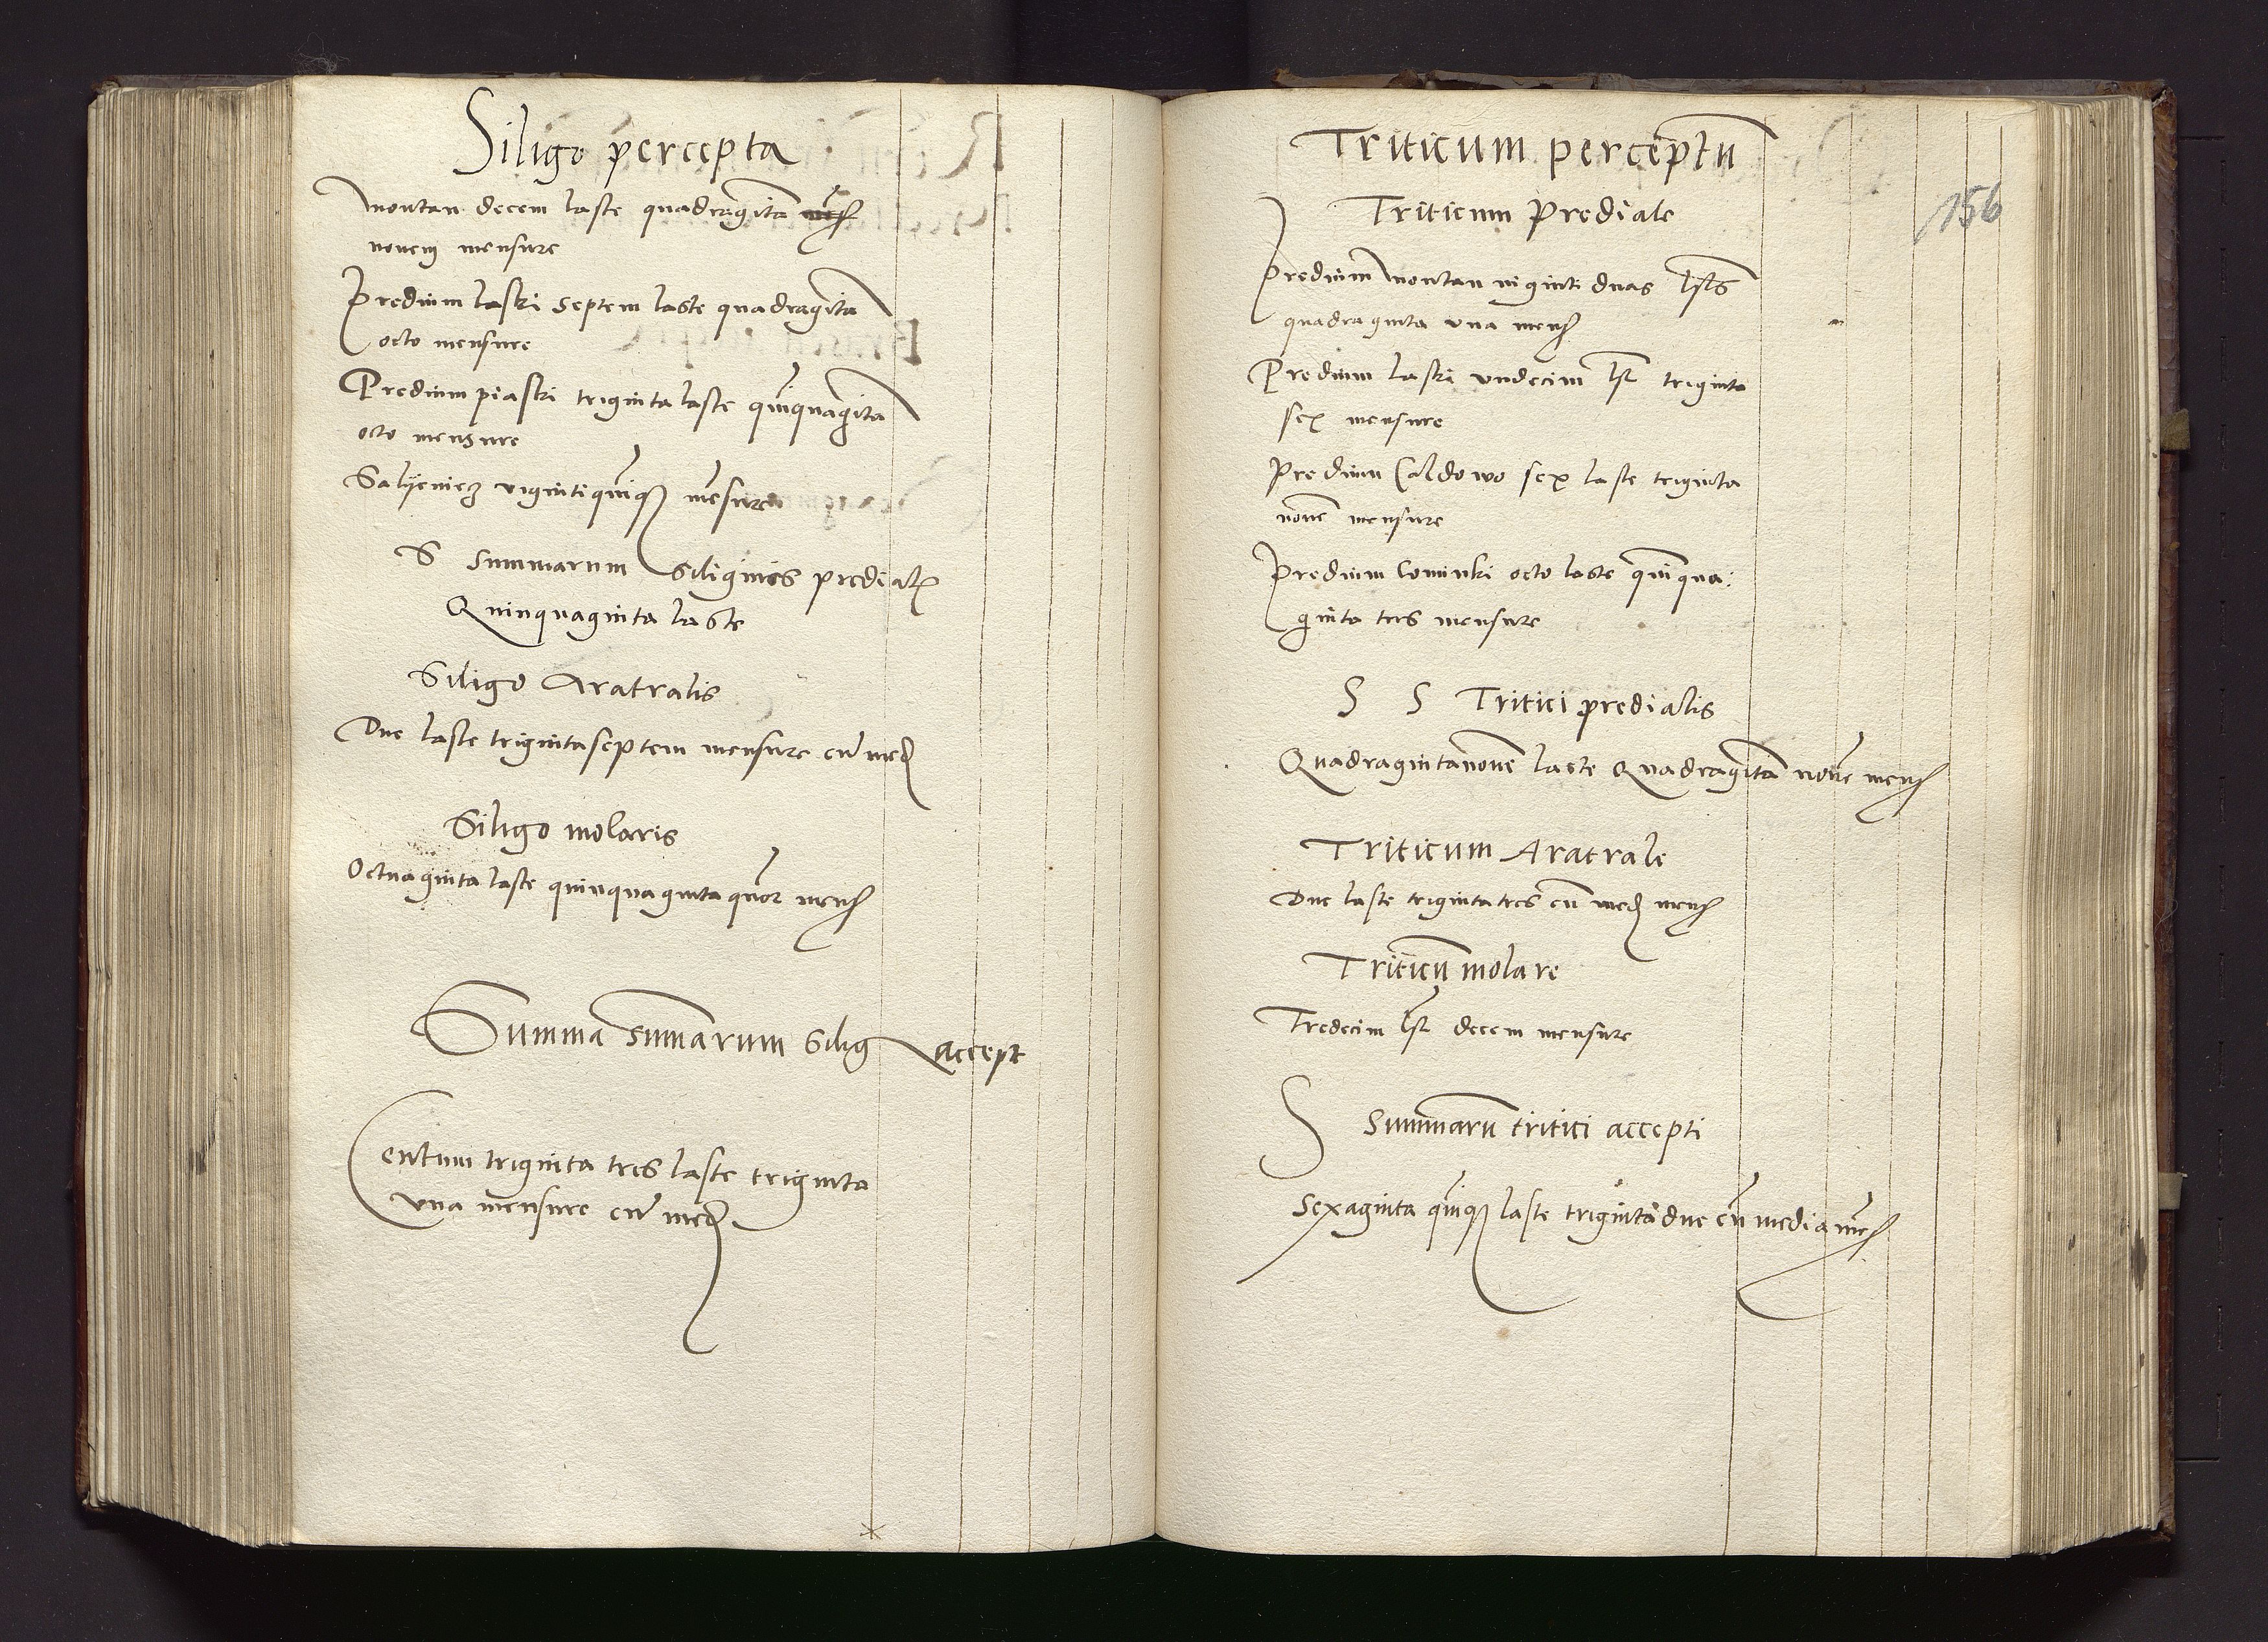 Siligo percepta
Montan decem laste quadragīta
novem mensure
Predium laski septem laste quadragīta
octo mensure
Predium piaski triginta laste quīquagīta
octo mensure
Salyeniez viginti quīqз mēsure
S summarum siliginis predial
Quinquaginta laste
Siligo Aratralis
Due laste triginta septem mensure cū med
Siligo molaris
Octuaginta laste quinquaginta qūor mens
Summa sūmarum Silig accept
Centum triginta tres laste triginta
una mensure cū med
Triticum perceptū
156
Triticum Prediale
Predium Montan viginti duas lsts
quadraginta una mens
Predium laski undecim lst triginta
sex mensure
Predium Caldowo sex laste triginta
novē mensure
Predium Cominki octo laste quīqua:
ginta tres mensure
S S Tritici predialis
Quadraginta novē laste Quadragīta novē mens
Triticum Aratrale
Due laste triginta tres cū med mens
Triticū molare
Tredecim lst decem mensure
S summarū tritici accepti
Sexaginta quīqз laste triginta due cū media mēs